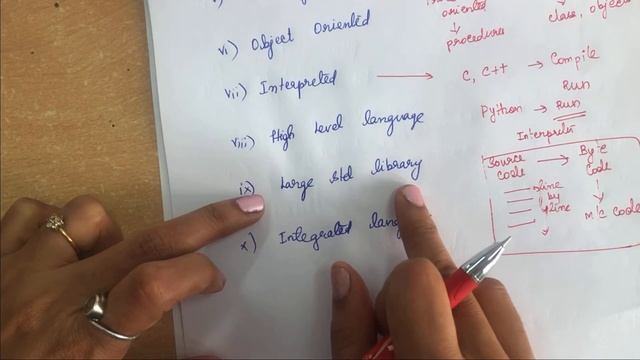 oriented
↓
procedures
class, objects
vi) Object Oriented
vii) Interpreted → C, C++ → Compile
Run
Python → Run
viii) High Level language
Interpreter
Source Code → Byte Code
line by line
↓
M/C Code
ix) Large std library
x) Integrated lang